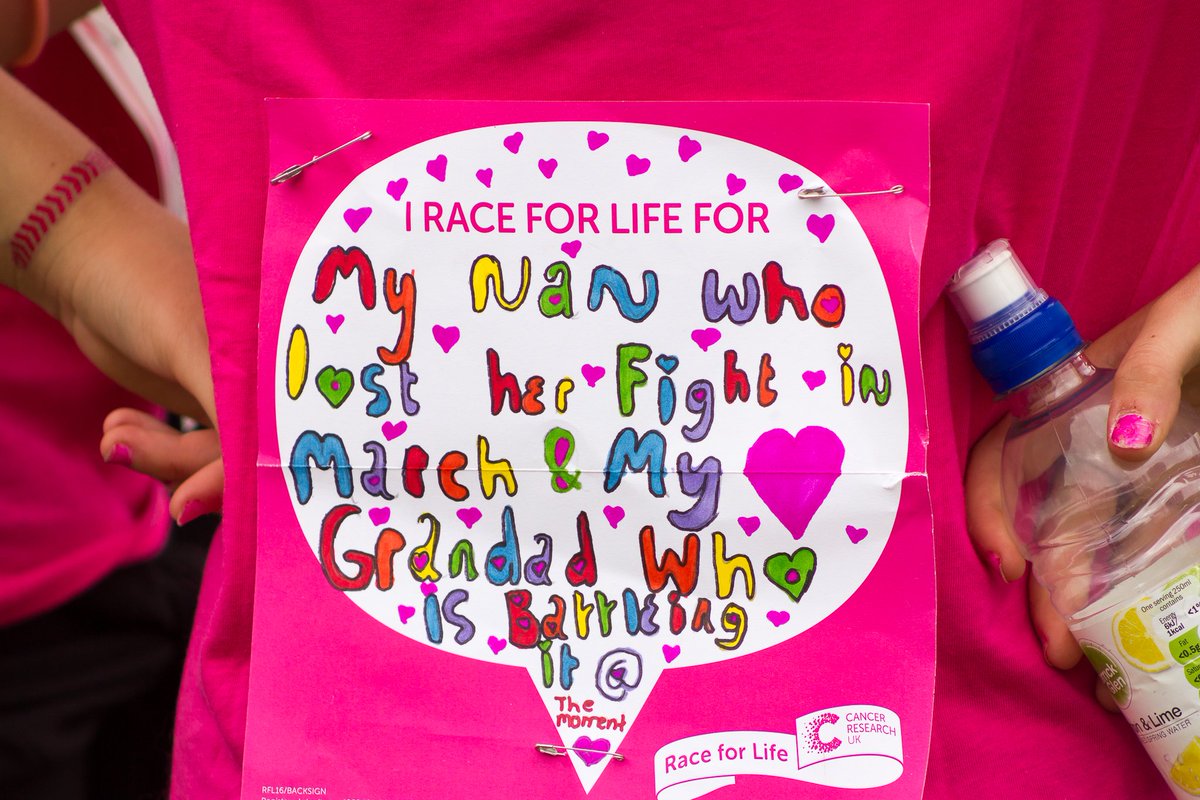 I RACE FOR LIFE FOR
My NaN who
lost her Fight in
March & My
Grandad Who
is Barrleing
it @
The
moment
Race for Life
CANCER
RESEARCH
UK
RFL16/BACKSIGN
One serving 250ml
contains
Energy
6kJ
1kcal
Fat
<0.5g
& Lime
SPRING WATER